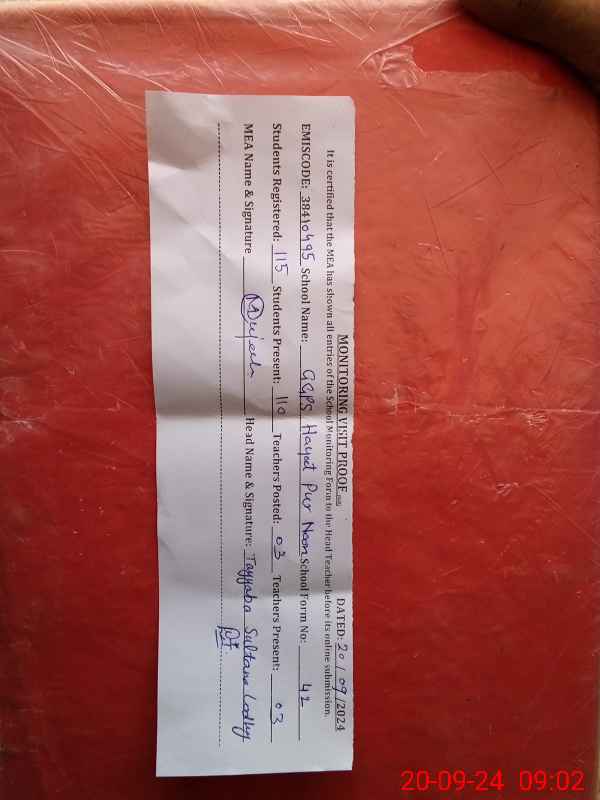 MONITORING VISIT PROOF DATED: 20/09/2024
It is certified that the MEA has shown all entries of the School Monitoring Form to the Head Teacher before its online submission.
EMISCODE: 38410495 School Name: GGPS Hayat Pur Noon School Form No: 42
Students Registered: 115 Students Present: 110 Teachers Posted: 03 Teachers Present: 03
MEA Name & Signature Head Name & Signature: Tayyaba Sultana Lodhy
20-09-24 09:02